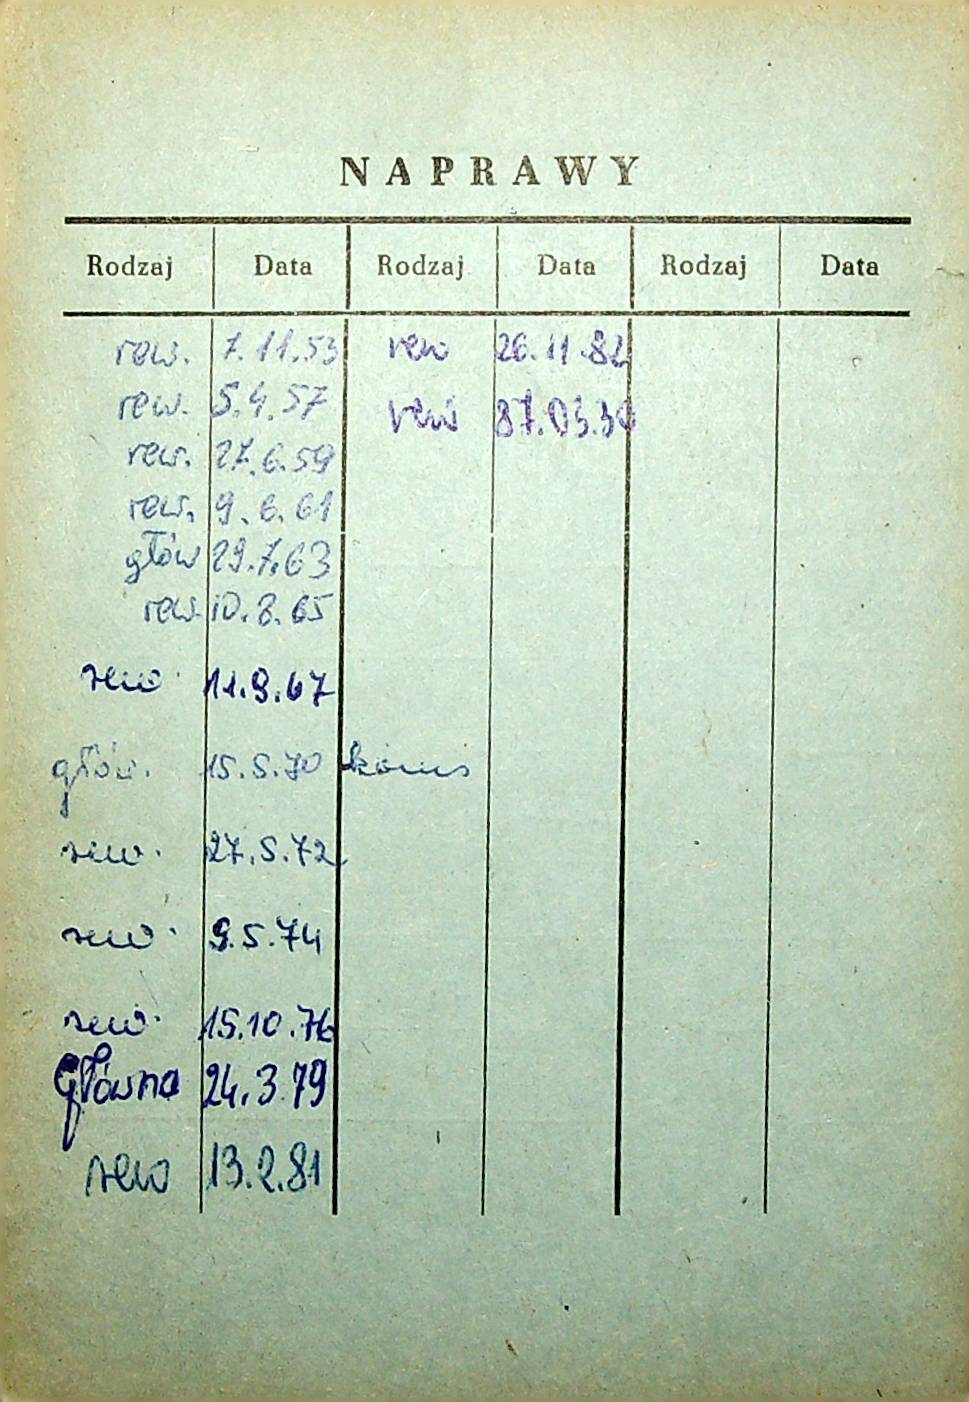 NAPRAWY
Rodzaj Data Rodzaj Data Rodzaj Data
rew. 7.11.53 rew 26.11.82
rew. 5.4.57 rew 87.03.30
rew. 27.6.59
rew. 9.6.61
głów 29.7.63
rew. 10.8.65
rew. 11.9.67
głów. 15.5.70
rew. 27.5.72
rew. 9.5.74
rew. 15.10.76
Główna 24.3.79
rew 13.2.81